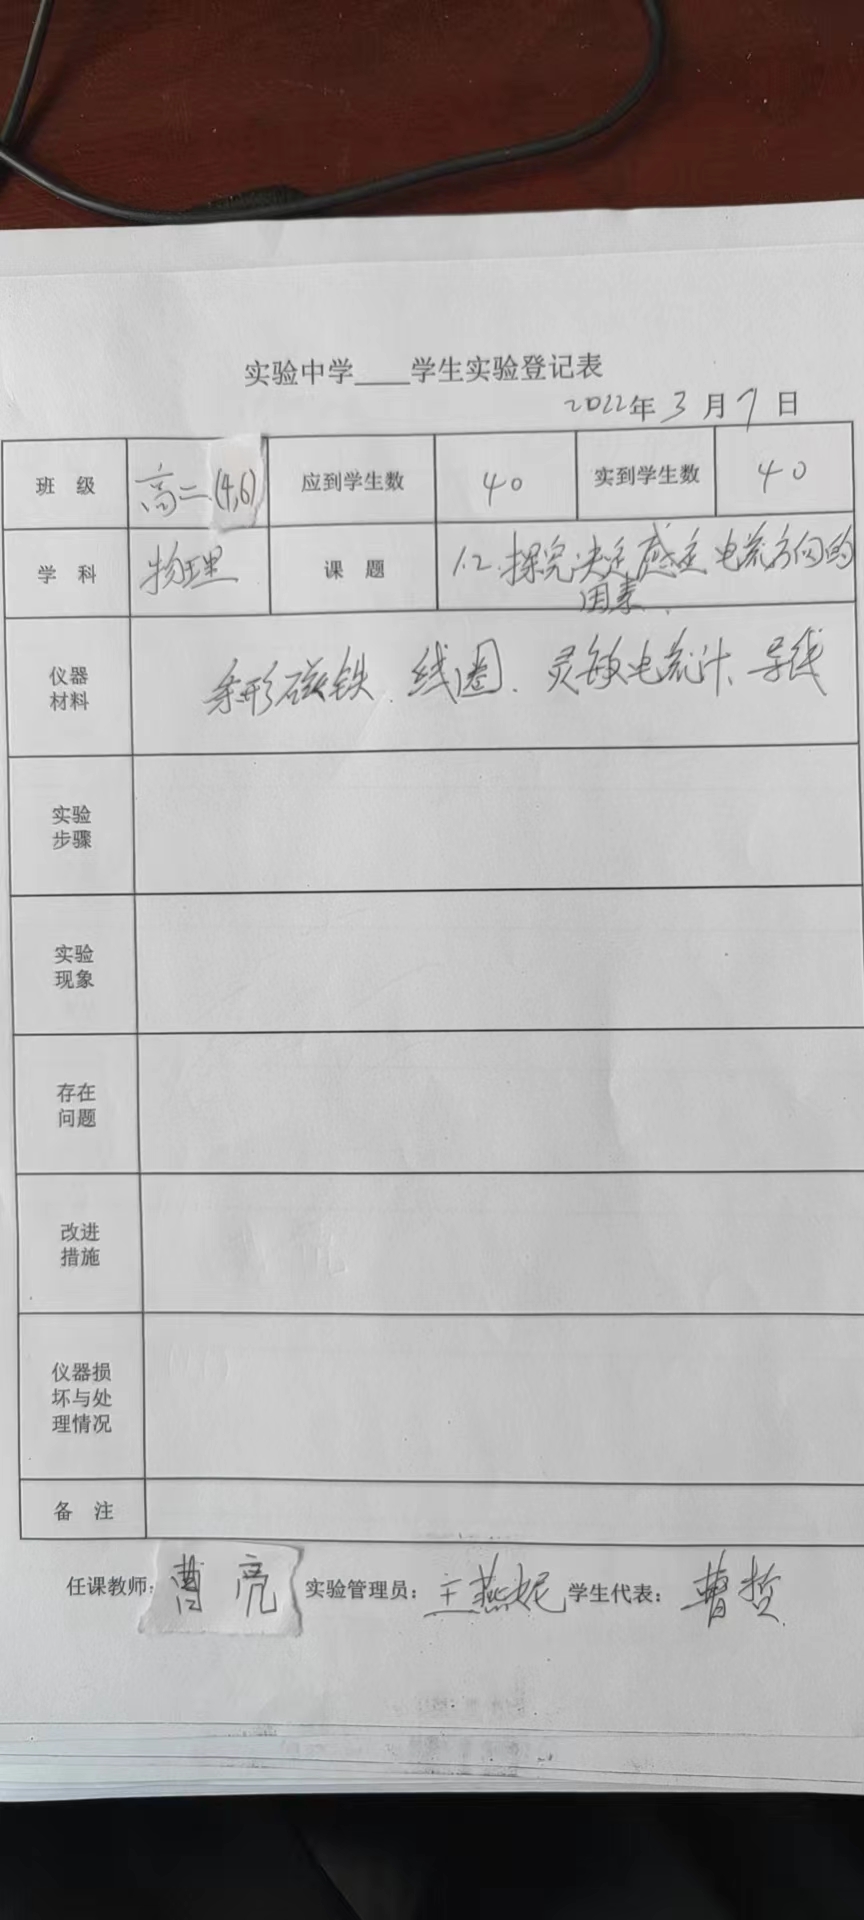 实验中学____学生实验登记表
2022年 3 月 7 日
班 级 高二(4,6) 应到学生数 40 实到学生数 40
学 科 物理 课 题 1.2.探究决定感应电流方向的
因素.
仪器
材料
条形磁铁、线圈、灵敏电流计、导线
实验
步骤
实验
现象
存在
问题
改进
措施
仪器损
坏与处
理情况
备 注
任课教师: 曹亮 实验管理员: 王燕妮 学生代表: 曹哲